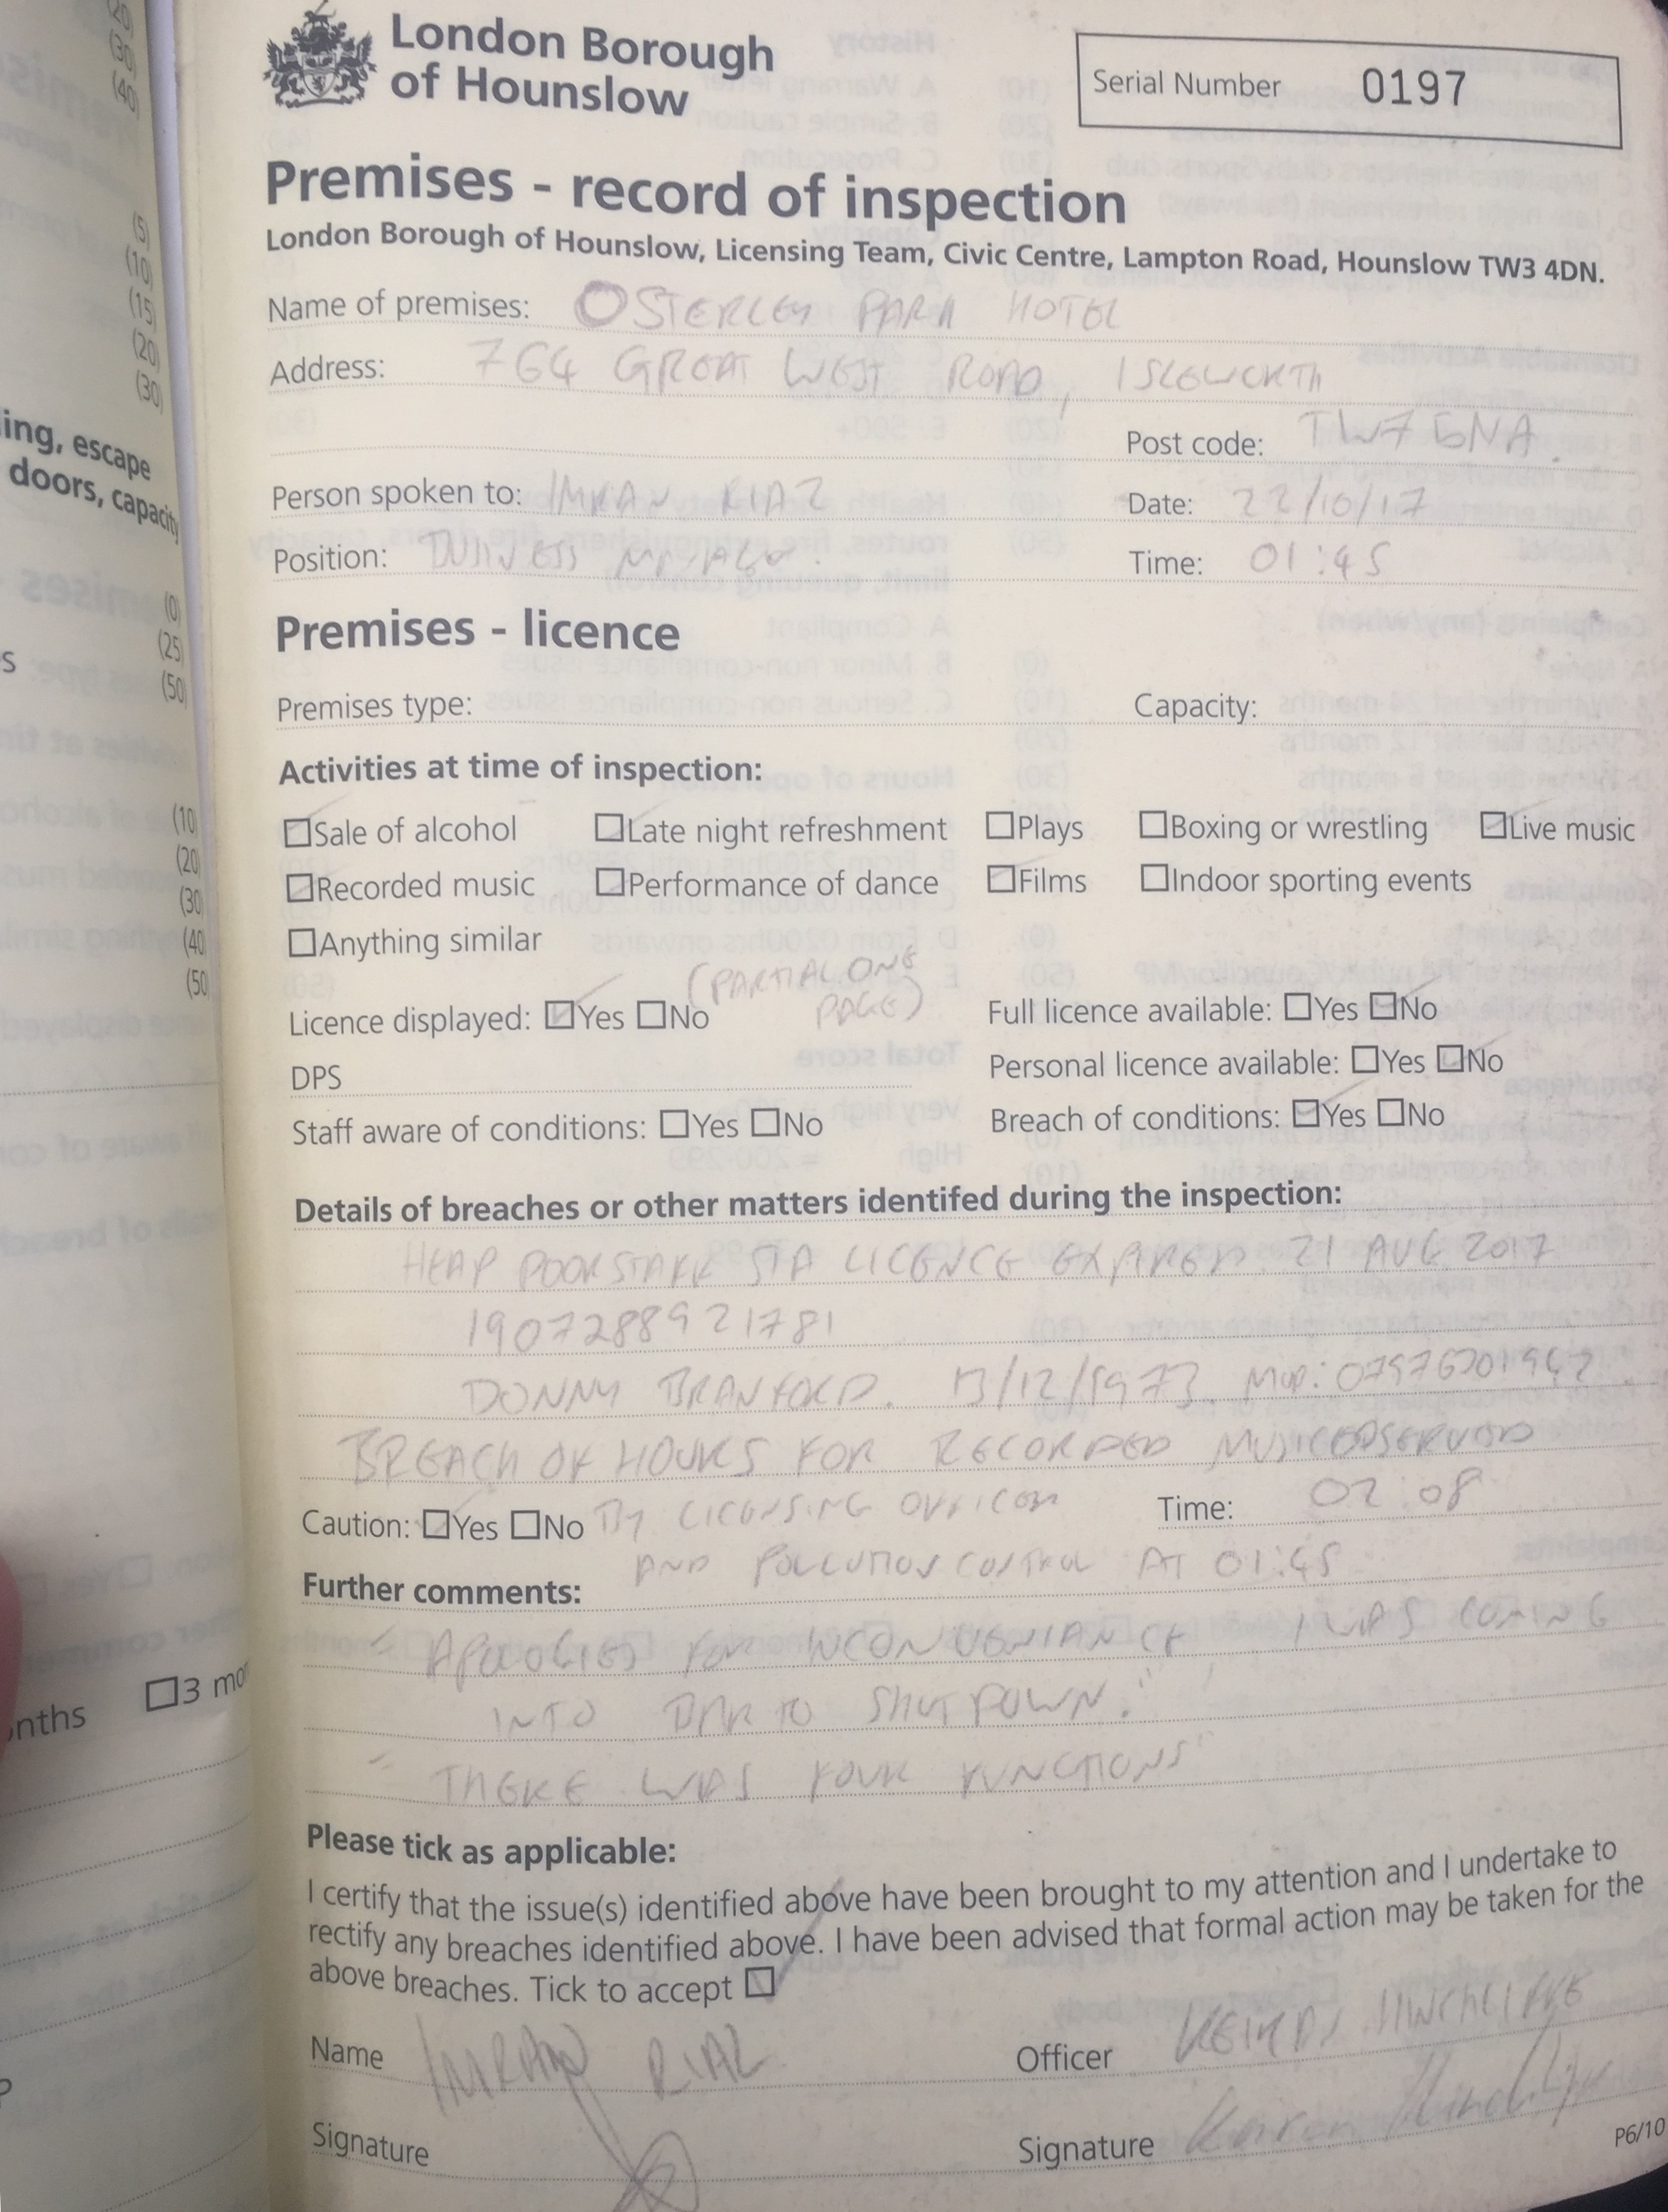 London Borough
of Hounslow
Serial Number 0197
Premises - record of inspection
London Borough of Hounslow, Licensing Team, Civic Centre, Lampton Road, Hounslow TW3 4DN.
Name of premises: OSTERLEY PARK HOTEL
Address: 764 GREAT WEST ROAD, ISLEWORTH
Post code: TW7 5NA.
Person spoken to: IMRAN RIAZ Date: 22/10/17
Position: BUSINESS MANAGER. Time: 01:45
Premises - licence
Premises type: Capacity:
Activities at time of inspection:
Sale of alcohol Late night refreshment Plays Boxing or wrestling Live music
Recorded music Performance of dance Films Indoor sporting events
Anything similar
(PARTIAL ONE
PAGE)
Licence displayed: Yes No Full licence available: Yes No
DPS Personal licence available: Yes No
Staff aware of conditions: Yes No Breach of conditions: Yes No
Details of breaches or other matters identifed during the inspection:
HEAD DOORSTAFF SIA LICENCE EXPIRED 21 AUG 2017
1907288921781
DONNY BRANFORD. 13/12/1973. MOB:
BREACH OF HOURS FOR RECORDED MUSIC OBSERVED
Caution: Yes No BY LICENSING OFFICER Time: 02:08
AND POLLUTION CONTROL AT 01:45
Further comments:
" APOLOGIES FOR INCONVENIANCE I WAS COMING
INTO BAR TO SHUT DOWN."
" THERE WAS FOUR FUNCTIONS"
Please tick as applicable:
I certify that the issue(s) identified above have been brought to my attention and I undertake to
rectify any breaches identified above. I have been advised that formal action may be taken for the
above breaches. Tick to accept
Name IMRAN RIAZ Officer HINCHLIFFE
Signature Signature Karen Hinchliffe
P6/10
ing, escape
doors, capacity
(5)
(10)
(15)
(20)
(30)
(0)
(25)
(50)
(10)
(20)
(30)
(40)
(50)
nths 3 mo